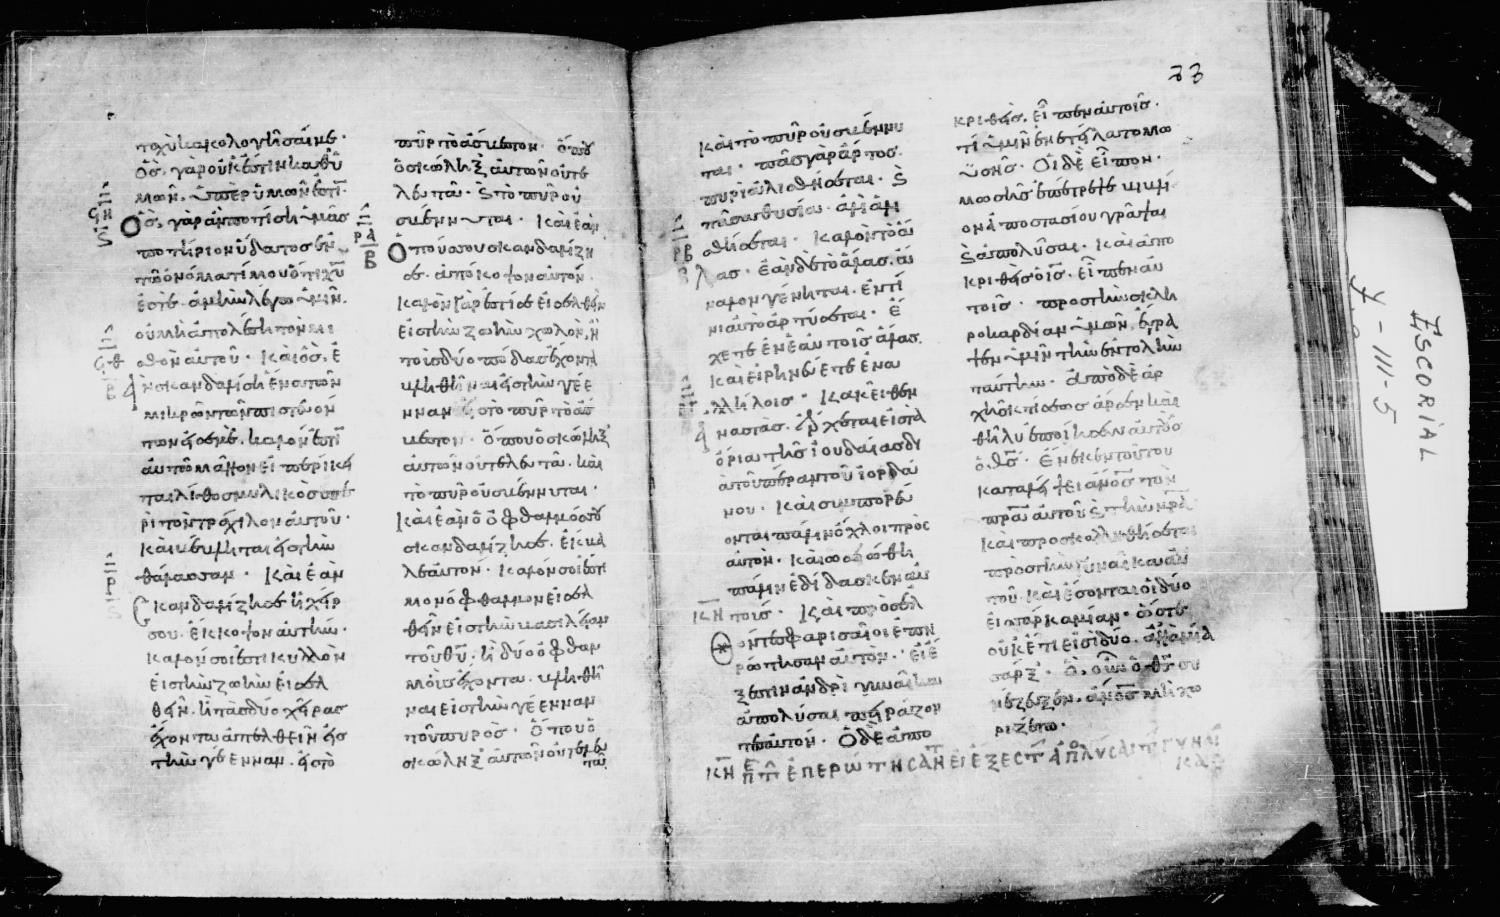 ταχὺ κακολογῆσαί με·
ὃς γὰρ οὐκ ἔστιν καθ' ὑ
μῶν, ὑπὲρ ὑμῶν ἐστι·
Ὃς γὰρ ἂν ποτίσῃ ὑμᾶς
ποτήριον ὕδατος ἐν
τῷ ὀνόματί μου ὅτι χυ
ἐστε· ἀμὴν λέγω ὑμῖν·
οὐ μὴ ἀπολέσῃ τὸν μι
σθὸν αὐτοῦ· Καὶ ὃς ἐ
ὰν σκανδαλίσῃ ἕνα τῶν
μικρῶν τῶν πιστευόν
των εἰς ἐμέ· καλόν ἐστι
αὐτῷ μᾶλλον εἰ περίκει
ται λίθος μυλικὸς πε
ρὶ τὸν τράχηλον αὐτοῦ·
καὶ βέβληται εἰς τὴν
θάλασσαν· Καὶ ἐὰν
σκανδαλίζῃ σε ἡ χείρ
σου· ἔκκοψον αὐτήν·
καλόν σοι ἐστι κυλλὸν
εἰς τὴν ζωὴν εἰσελ
θεῖν· ἢ τὰς δύο χεῖρας
ἔχοντα ἀπελθεῖν εἰς
τὴν γέενναν· εἰς τὸ
πῦρ τὸ ἄσβεστον· ὅπου
ὁ σκώληξ αὐτῶν οὐ τε
λευτᾷ· καὶ τὸ πῦρ οὐ
σβέννυται· Καὶ ἐὰν
ὁ πούς σου σκανδαλίζῃ
σε· ἀπόκοψον αὐτόν·
καλὸν γάρ ἐστί σε εἰσελθεῖν
εἰς τὴν ζωὴν χωλὸν, ἢ
τοὺς δύο πόδας ἔχοντα
βληθῆναι εἰς τὴν γέε
νναν εἰς τὸ πῦρ τὸ ἄσ
βεστον· ὅπου ὁ σκώληξ
αὐτῶν οὐ τελευτᾷ· καὶ
τὸ πῦρ οὐ σβέννυται·
Καὶ ἐὰν ὁ ὀφθαλμός σου
σκανδαλίζῃ σε· ἔκβα
λε αὐτόν· καλόν σοι ἐστι
μονόφθαλμον εἰσελ
θεῖν εἰς τὴν βασιλείαν
τοῦ θυ· ἢ δύο ὀφθαλ
μοὺς ἔχοντα· βληθῆ
ναι εἰς τὴν γέενναν
τοῦ πυρός· ὅπου ὁ
σκώληξ αὐτῶν οὐ τελευ
τᾷ
33
καὶ τὸ πῦρ οὐ σβέννυ
ται· πᾶς γὰρ ἄρτος
πυρὶ ἁλισθήσεται· καὶ
πᾶσα θυσία ἁλὶ ἁλι
σθήσεται· καλὸν τὸ ἅ
λας· ἐὰν δὲ τὸ ἅλας ἄ
ναλον γένηται· ἐν τί
νι αὐτὸ ἀρτύσεται· ἔ
χετε ἐν ἑαυτοῖς ἅλας·
καὶ εἰρηνεύετε ἐν ἀ
λλήλοις· κἀκεῖθεν
ἀναστὰς· ἔρχεται εἰς τὰ
ὅρια τῆς ἰουδαίας δι
ὰ τοῦ πέραν τοῦ ἰορδά
νου· Καὶ συμπορεύ
ονται πάλιν ὄχλοι πρὸς
αὐτόν· καὶ ὡς εἰώθει
πάλιν ἐδίδασκεν αὐ
τούς· Καὶ προσελ
θόντες φαρισαῖοι ἐπη
ρώτησαν αὐτόν· εἰ ἔ
ξεστιν ἀνδρὶ γυναῖκα
ἀπολῦσαι πειράζον
τες αὐτόν· Ὁ δὲ ἀπο
κριθεὶς, εἶπεν αὐτοῖς·
τί ὑμῖν ἐνετείλατο μω
ϋσῆς· Οἱ δὲ εἶπον·
μωσῆς ἐπέτρεψε βιβλί
ον ἀποστασίου γράψαι
καὶ ἀπολῦσαι· Καὶ ἀπο
κριθεὶς ὁ ις· εἶπεν αὐ
τοῖς· πρὸς τὴν σκλη
ροκαρδίαν ὑμῶν, ἔγρα
ψεν ὑμῖν τὴν ἐντολὴν
ταύτην· ἀπὸ δὲ ἀρ
χῆς κτίσεως ἄρσεν καὶ
θῆλυ ἐποίησεν αὐτοὺς
ὁ θς· Ἕνεκεν τούτου
καταλείψει ανος τὸν
πρα αὐτοῦ καὶ τὴν μρα
καὶ προσκολληθήσεται
πρὸς τὴν γυναῖκα αὐ
τοῦ· καὶ ἔσονται οἱ δύο
εἰς σάρκα μίαν· ὥστε
οὐκέτι εἰσὶ δύο, ἀλλὰ μία
σάρξ· Ὃ οὖν ὁ θς συ
νέζευξεν, ανος μὴ χω
ριζέτω·